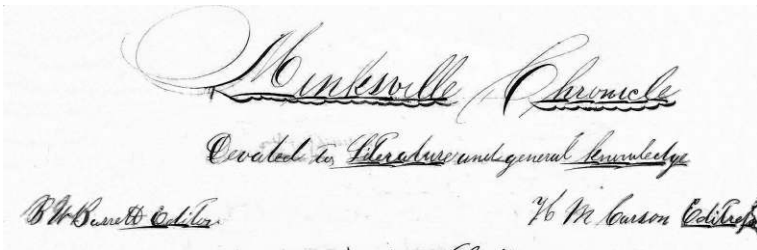 Minksville Chronicle
Devoted to Literature and general knowledge
B W Barrett Editor
H M Carson Editress